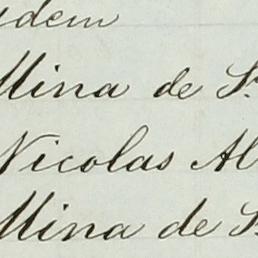 idem
Mina de S.
Nicolas Al
Mina de S